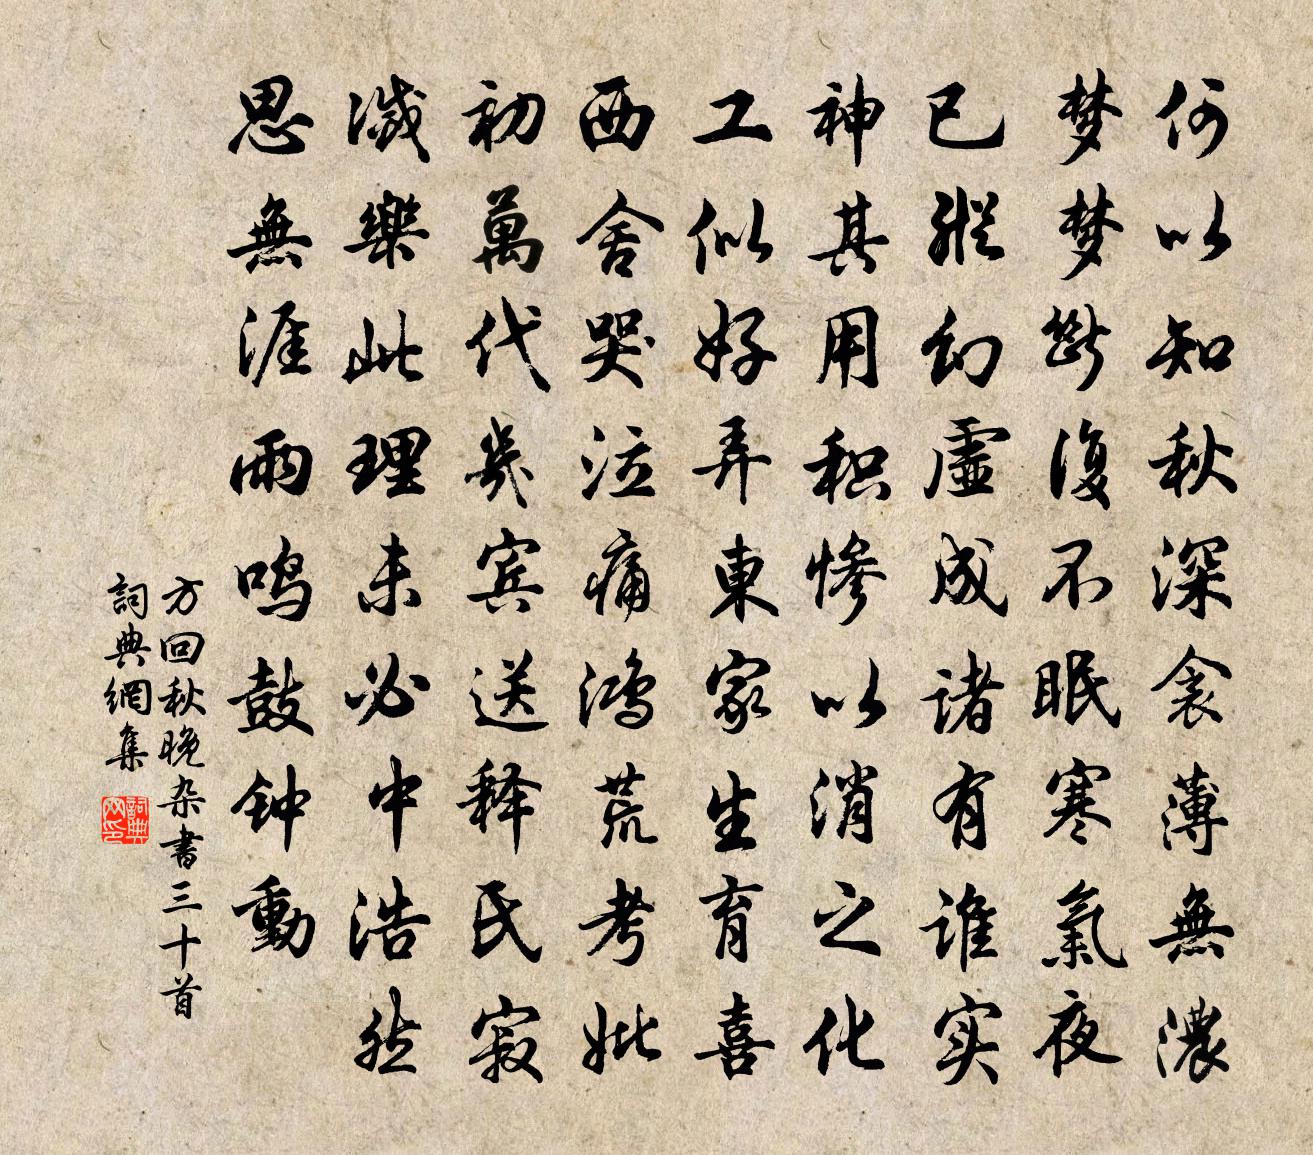 何以知秋深衾薄無濃
梦梦斷復不眠寒氣夜
已縱幻虛成诸有谁实
神其用积惨以消之化
工似好弄東家生育喜
西舍哭泣痛鸿荒考妣
初萬代幾宾送释民寂
滅樂此理未必中浩然
思無涯雨鸣鼓钟動
方回秋晚杂書三十首
詞典網集
詞典网印